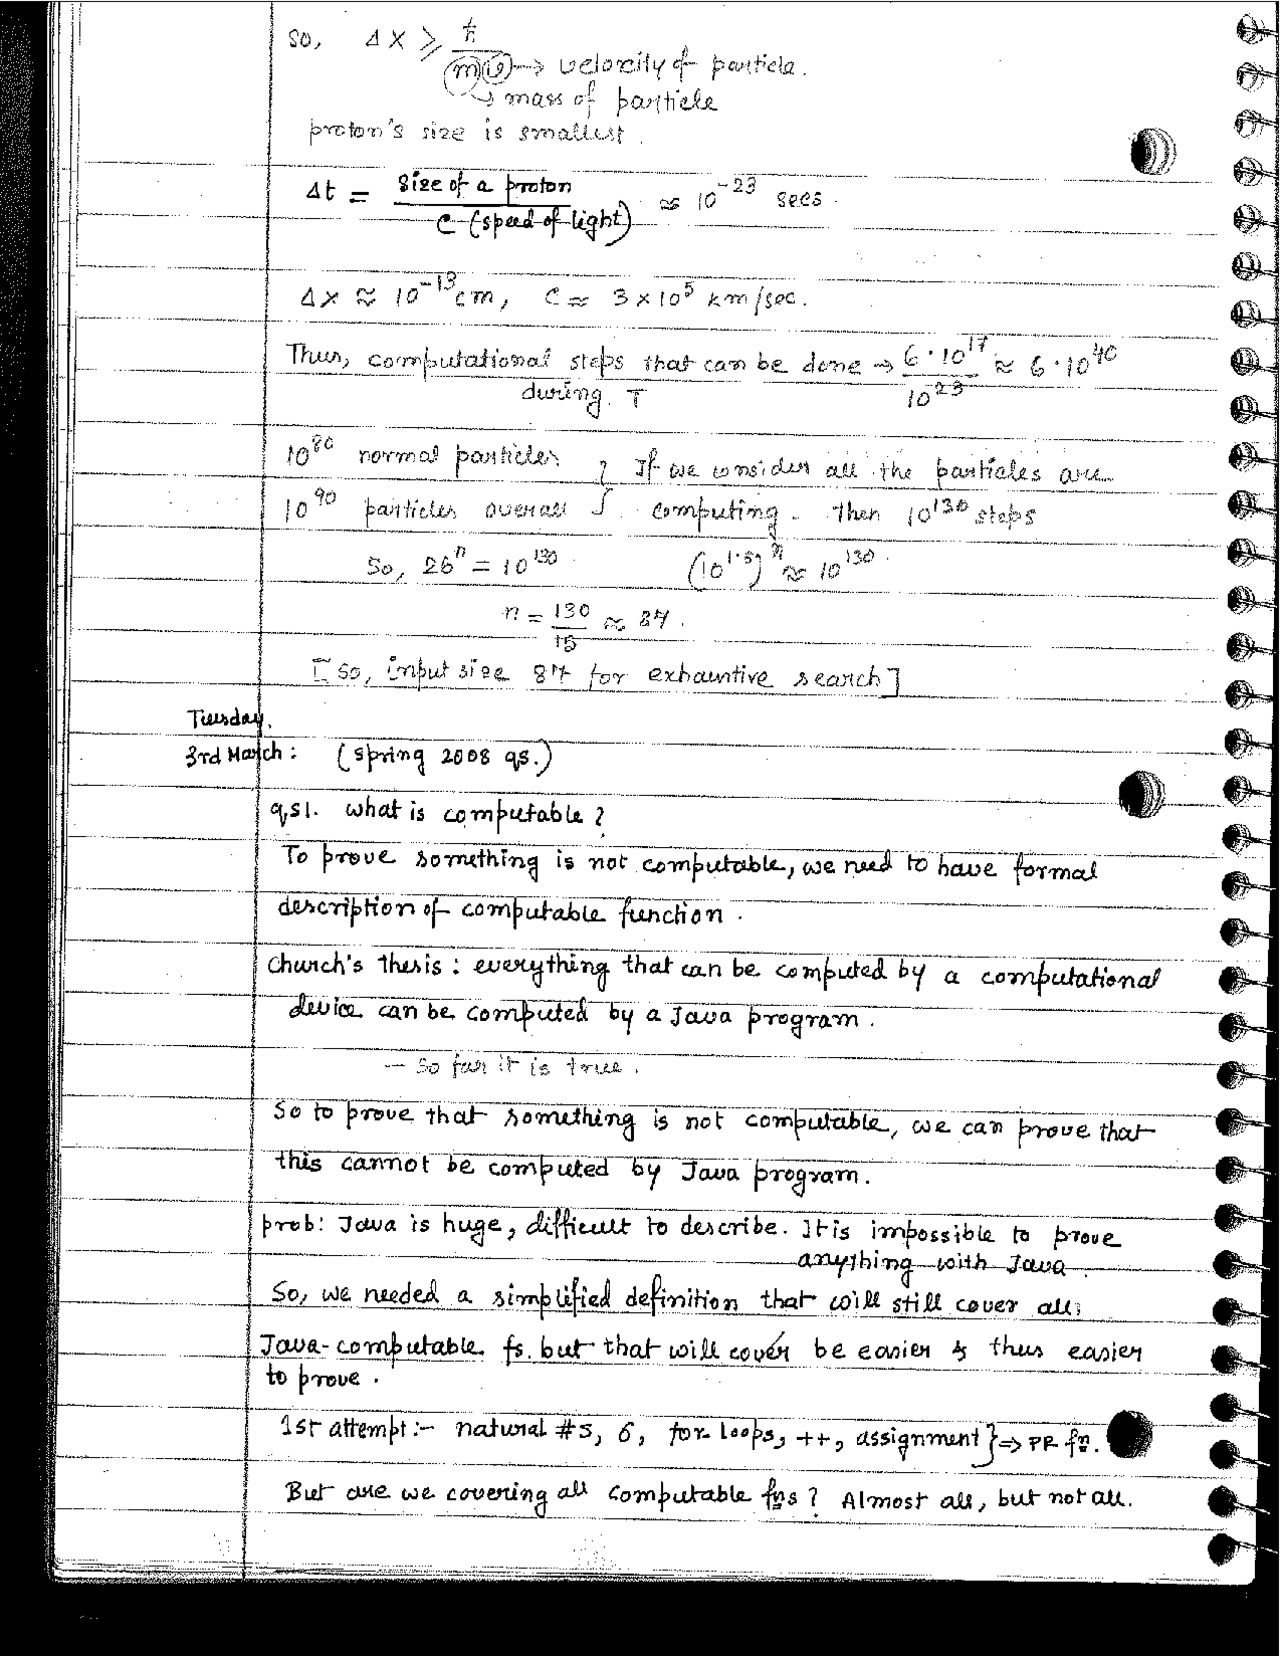 So, Δx ≥ ħ / mv → velocity of particle.
→ mass of particle
proton's size is smallest.
Δt = size of a proton / c (speed of light) ≈ 10^-23 secs.
Δx ≈ 10^-13 cm, c ≈ 3 × 10^5 km/sec.
Thus, computational steps that can be done → 6·10^17 / 10^23 ≈ 6·10^40
during T
10^80 normal particles } If we consider all the particles are
10^90 particles overall } computing. Then 10^130 steps
So, 26^n = 10^130 (10^1.5)^n ≈ 10^130.
n = 130 / 15 ≈ 87.
[So, input size 87 for exhauntive search]
Tuesday,
3rd March: (spring 2008 qs.)
qs1. What is computable?
To prove something is not computable, we need to have formal
description of computable function.
Church's thesis: everything that can be computed by a computational
device can be computed by a Java program.
— So far it is true.
So to prove that something is not computable, we can prove that
this cannot be computed by Java program.
prob: Java is huge, difficult to describe. It is impossible to prove
anything with Java.
So, we needed a simplified definition that will still cover all
Java-computable fs. but that will cover be easier & thus easier
to prove.
1st attempt:- natural #s, 6, for-loops, ++, assignment} ⇒ PR fn.
But are we covering all computable fns? Almost all, but not all.